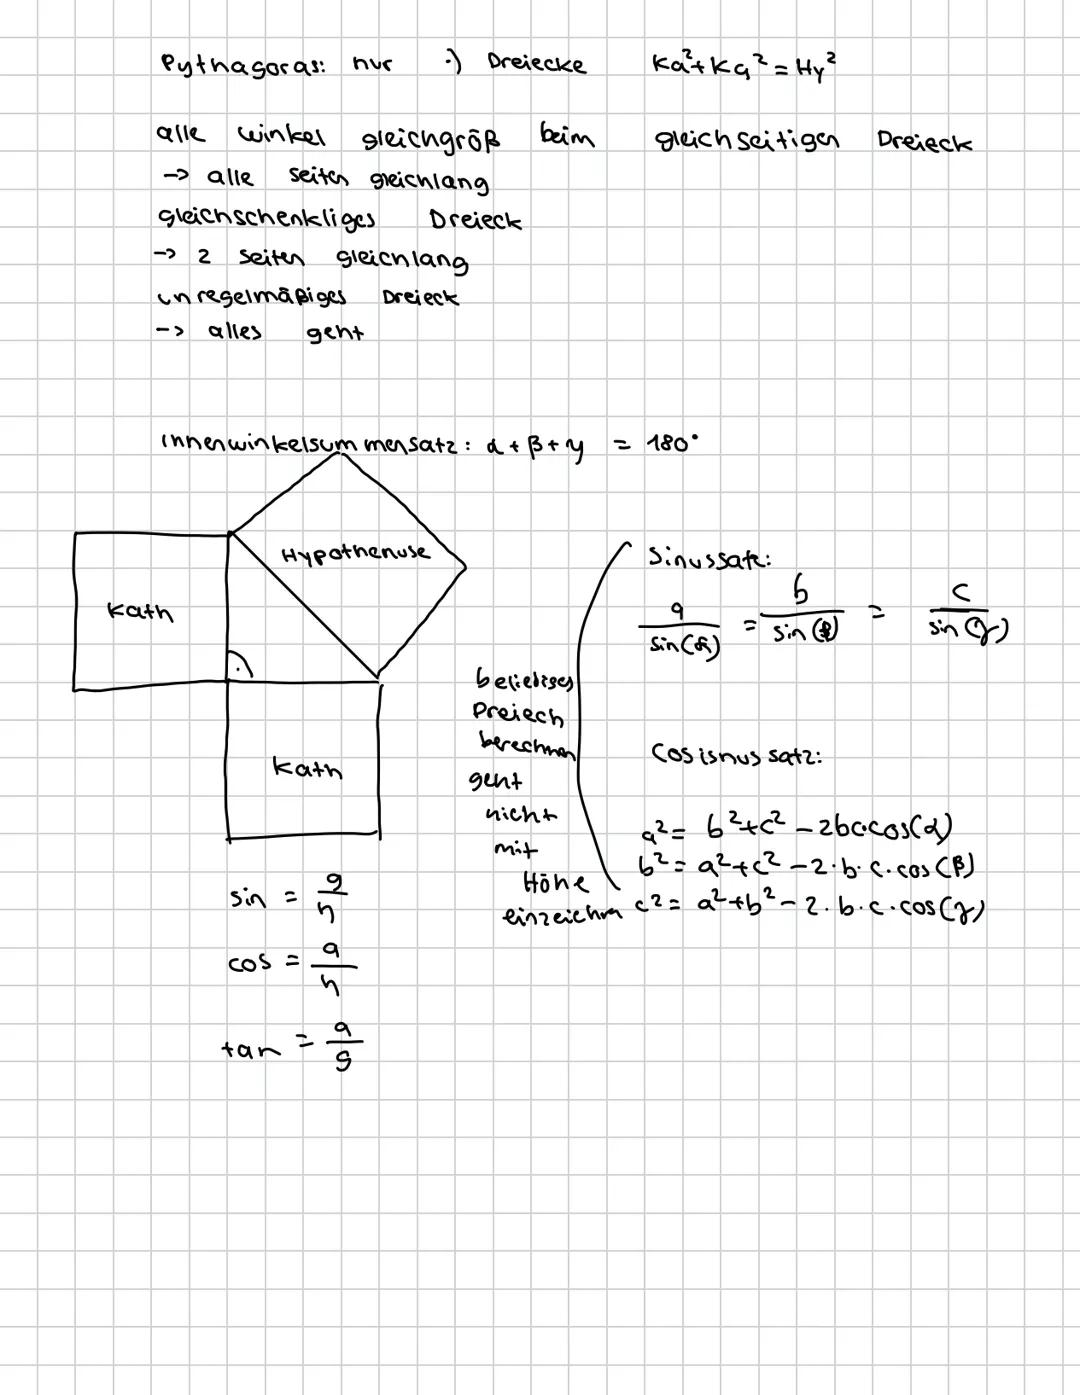 Pythagoras: nur ·) Dreiecke Ka²+Kg²=Hy²
alle winkel gleichgröß beim gleichseitigen Dreieck
-> alle seiten gleichlang
gleichschenkliges Dreieck
-> 2 seiten gleichlang
unregelmäßiges Dreieck
-> alles geht
Innenwinkelsummensatz: α + β + γ = 180°
Hypothenuse
Kath
Kath
sin = g/h
cos = a/h
tan = a/g
beliebiges
Dreiech
berechnen
geht
nicht
mit
Höhe
einzeichnen
Sinussatz:
a/sin(α) = b/sin(β) = c/sin(γ)
Cosisnussatz:
a² = b²+c² – 2bc·cos(α)
b² = a²+c² – 2·b·c·cos(β)
c² = a²+b² – 2·b·c·cos(γ)